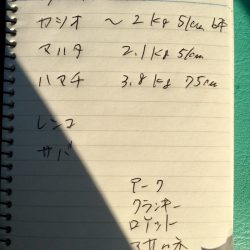 カツオ 〜2kg 51cm 6本
マハタ 2.1kg 51cm
ハマチ 3.8kg 75cm
レンコ
サバ
アーク
クランキー
ロケット